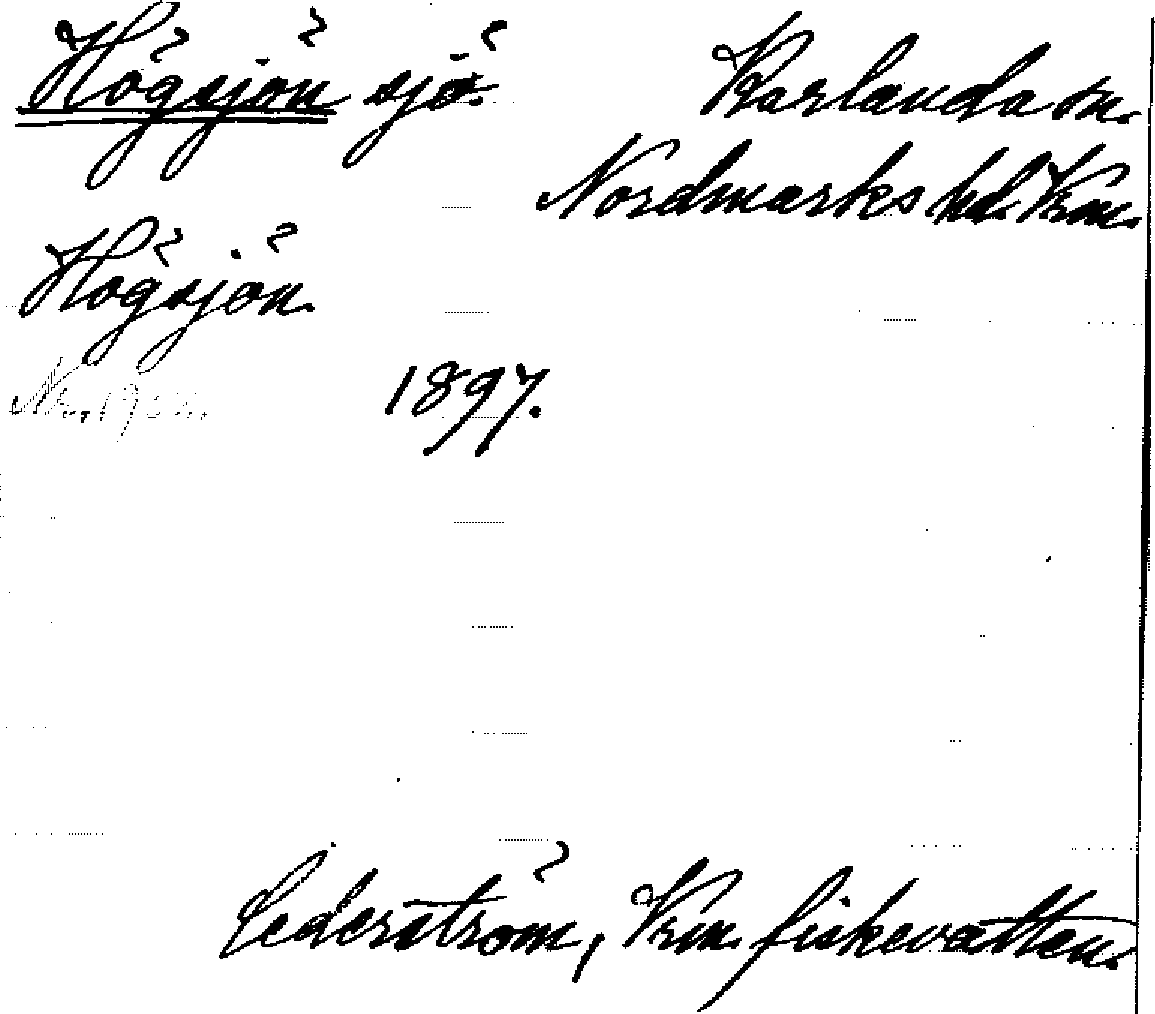 Högsjön sjö. Karlanda sn.
Nordmarks hd. Vrm.
Högsjön.
1897.
Cederström, Vrm. fiskevatten.